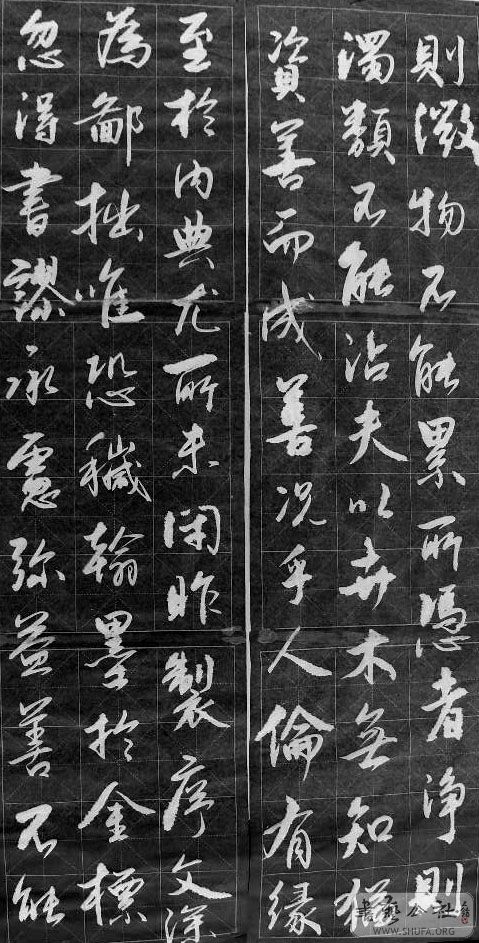 則微物不能累所憑者淨則
濁類不能沾夫以卉木無知猶
資善而成善況乎人倫有緣
至於內典尤所未閑昨製序文深
為鄙拙唯恐穢翰墨於金標
忽得書謬承慮弥益善不能
書藝公社
WWW.SHUFA.ORG